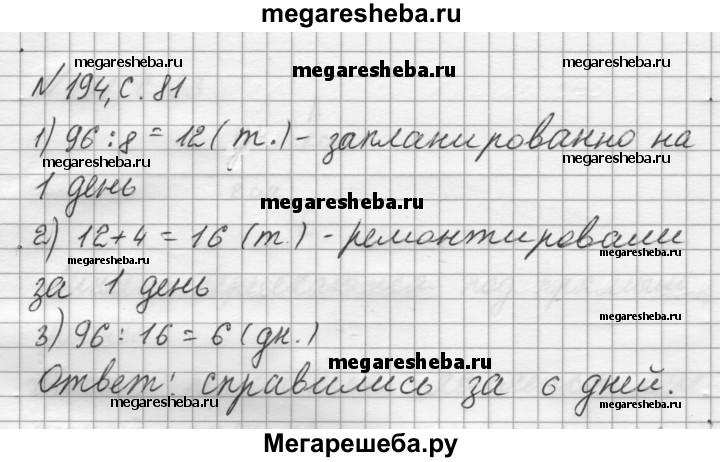 megaresheba.ru
megaresheba.ru
megaresheba.ru
megaresheba.ru
№ 194, с. 81
megaresheba.ru
1) 96 : 8 = 12 (т.) - запланированно на
megaresheba.ru
megaresheba.ru
1 день
megaresheba.ru
2) 12 + 4 = 16 (т.) - ремонтировали
megaresheba.ru
megaresheba.ru
за 1 день
3) 96 : 16 = 6 (дн.)
megaresheba.ru
megaresheba.ru
Ответ: справились за 6 дней.
megaresheba.ru
megaresheba.ru
Мегарешеба.ру